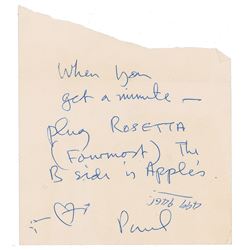 When you
get a minute —
plug ROSETTA
(Fourmost) The
B side is Apple's
Paul